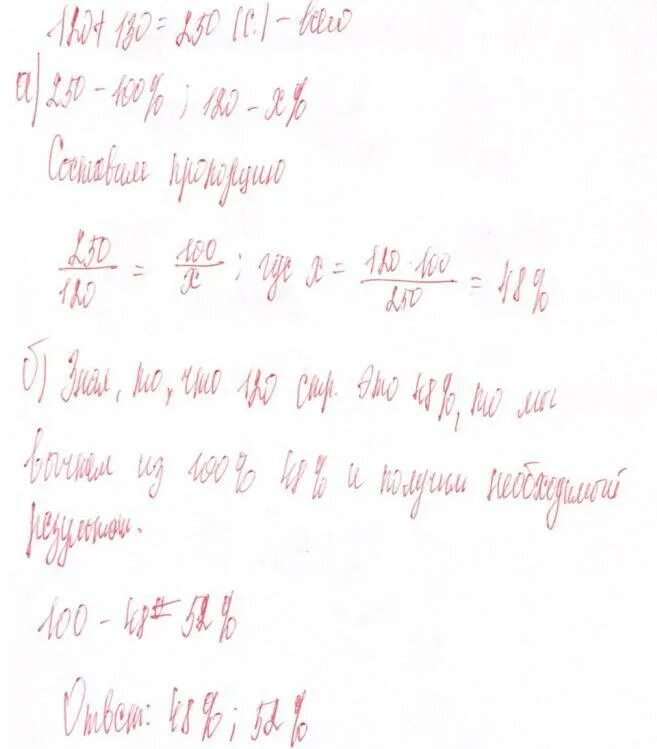 120 + 130 = 250 (с.) - всего
а) 250 - 100% ; 120 - x%
Составим пропорцию
250/120 = 100/x ; где x = 120 · 100/250 = 48%
б) Зная, то, что 120 стр. это 48%, то мы
вычтем из 100% 48% и получим необходимый
результат.
100 - 48 = 52%
Ответ: 48% ; 52%